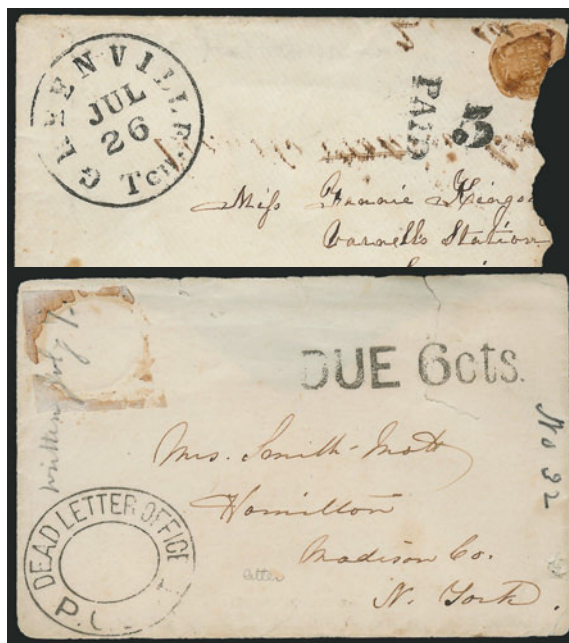 GREENVILLE
JUL
26
Ten.
PAID
5
Miss Fannie
Varnell's Station
DUE 6cts.
written July
No 32
Mrs. Smith Mott
Hamilton
Madison Co.
N. York.
DEAD LETTER OFFICE
P.O.
letter